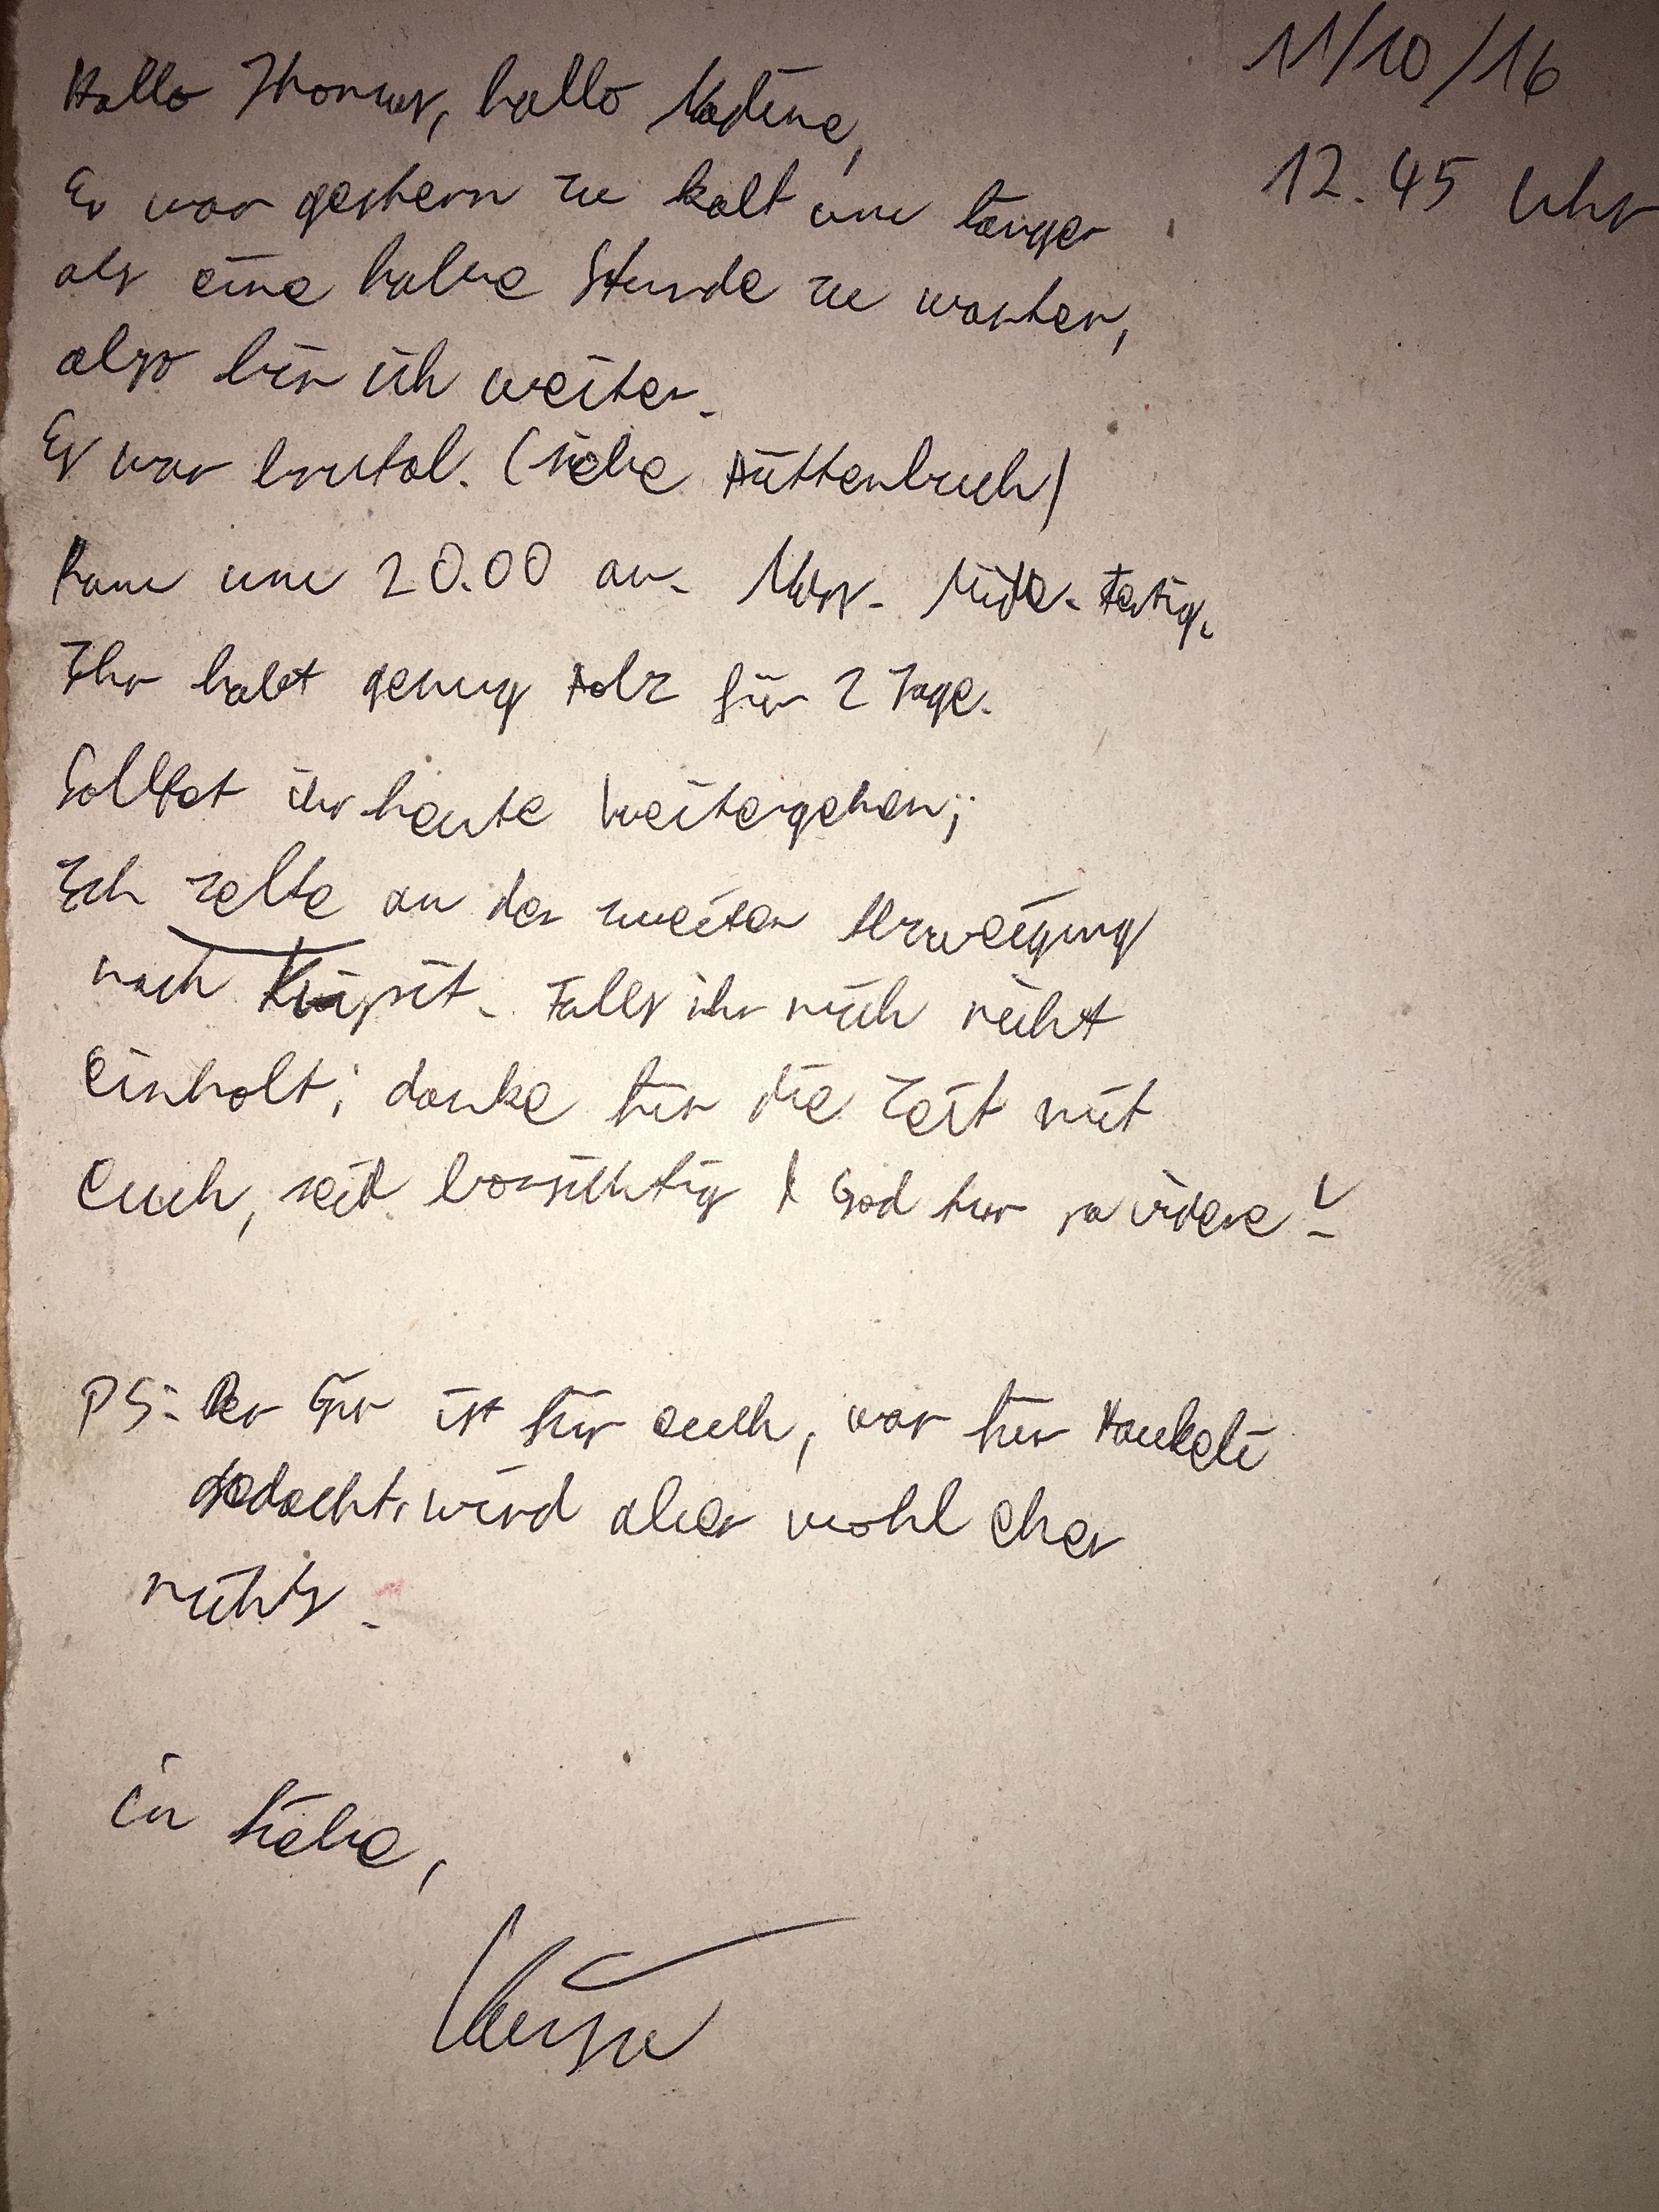 11/10/16
12.45 Uhr
Hallo Thomas, hallo Nadine,
Es war gestern zu kalt um länger
als eine halbe Stunde zu warten,
also bin ich weiter.
Es war brutal. (siehe Hüttenbuch)
Kam um 20.00 an. Nass. Müde. Fertig.
Ihr habt genug Holz für 2 Tage.
Solltet ihr heute weitergehen;
Ich zelte an der zweiten Verzweigung
nach. Falls ihr mich nicht
einholt; danke für die Zeit mit
euch, seit vorsichtig & God tur så videre!
PS: Der Gin ist für euch, war für Haukeli
gedacht, wird aber wohl eher
nichts.
in Liebe,